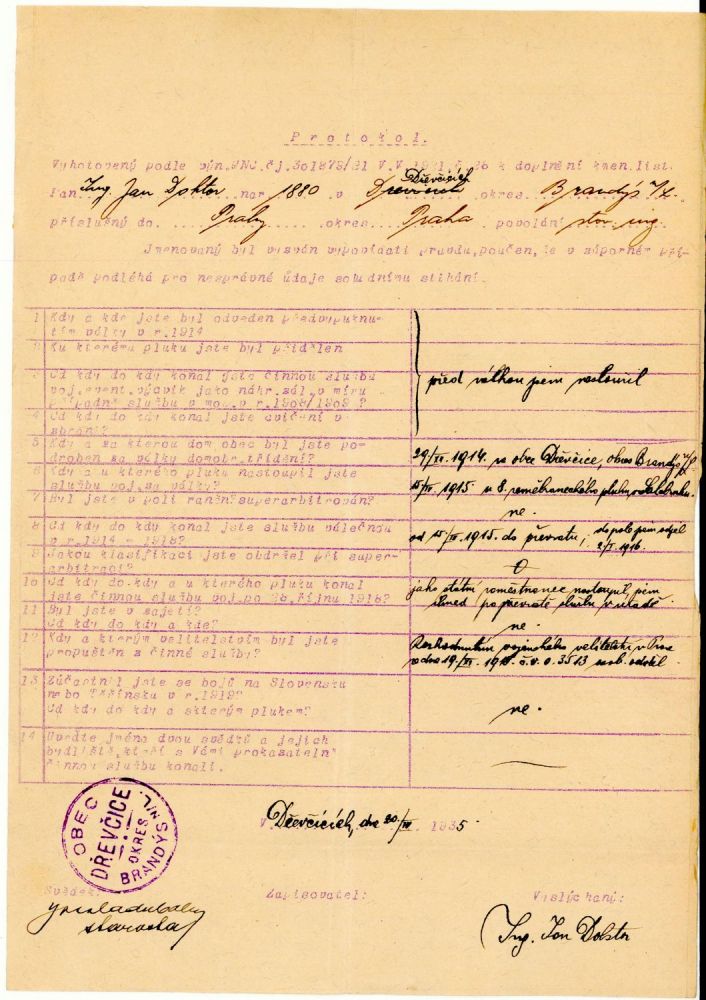 Protokol.
Vyhotovený podle výn. MNO. čj. 301873/21 V.V. 1921 č. 26 k doplnění kmen. list.
Pan Ing. Jan Doktor nar 1880 v Dřevčicích okres Brandýs n/L.
příslušný do Prahy okres Praha povolání stav. ing.
Jmenovaný byl vyzván vypovídati pravdu, poučen, že v záporném pří-
padě podléhá pro nesprávné údaje soudnímu stíhání.
1 Kdy a kde jste byl odveden před vypuknu-
tím války v r. 1914
2 Ku kterému pluku jste byl přidělen
3 Od kdy do kdy konal jste činnou službu
voj. event. výcvik jako náhr. zál. v míru
případně službu v mob. v r. 1908/1909 ?
4 Od kdy do kdy konal jste cvičení v
zbrani?
před válkou jsem nesloužil
5 Kdy a za kterou dom. obec byl jste po-
droben za války domobr. třídění?
29/XI. 1914. za obec Dřevčice, okres Brandýs n/L
6 Kdy a u kterého pluku nastoupil jste
službu voj. za války?
15/IV. 1915 u 8. zeměbraneckého pluku
7 Byl jste v poli raněn? superarbitrován?
ne.
8 Od kdy do kdy konal jste službu válečnou
v r. 1914 - 1918?
od 15/IV. 1915. do převratu; do pole jsem odjel
1916.
9 Jakou klasifikaci jste obdržel při super-
arbitraci?
0
10 Od kdy do kdy a u kterého pluku konal
jste činnou službu voj. po 28. říjnu 1918?
jako státní zaměstnanec nastoupil jsem
ihned po převratě službu v úřadě
11 Byl jste v zajetí?
Od kdy do kdy a kde?
ne.
12 Kdy a kterým velitelstvím byl jste
propuštěn z činné služby?
Rozhodnutím vojenského velitelství v Praze
ze dne 19/XI. 1918. č. 3513
13 Zúčastnil jste se bojů na Slovensku
nebo Těšínsku v r. 1919?
Od kdy do kdy a s kterým plukem?
ne.
14 Uveďte jméno dvou svědků a jejich
bydliště, kteří s Vámi prokazatelně
činnou službu konali.
V Dřevčicích, dne 20/IV 1935
OBEC DŘEVČICE OKRES BRANDÝS N/L.
Svědek: Zapisovatel: Vyslýchaný:
starosta
Ing. Jan Doktor